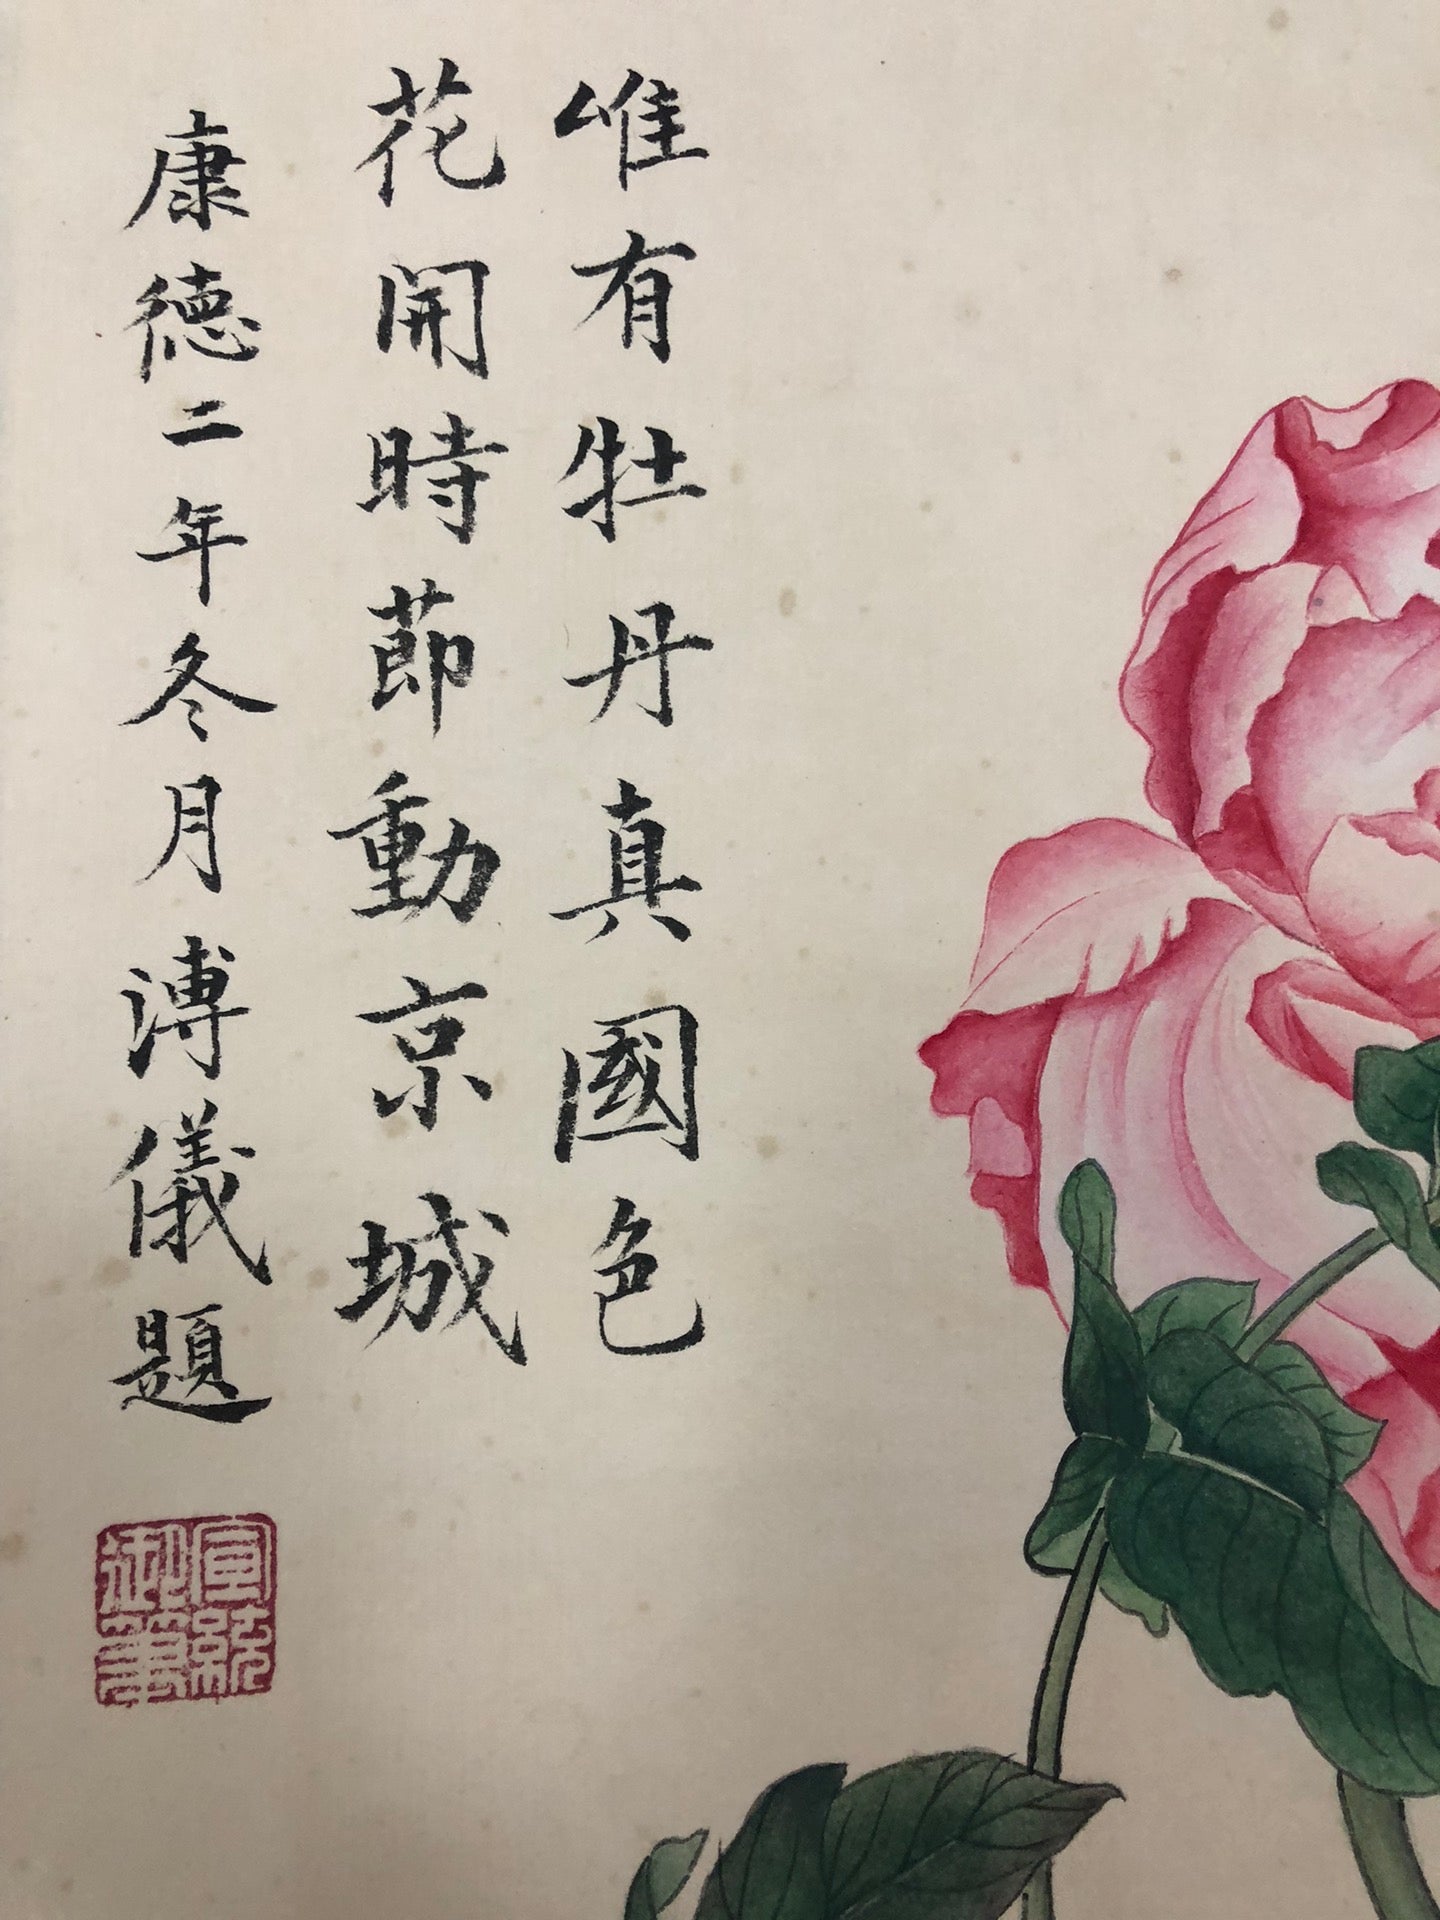 唯有牡丹真國色
花開時節動京城
康德二年冬月溥儀題
宣統
御筆